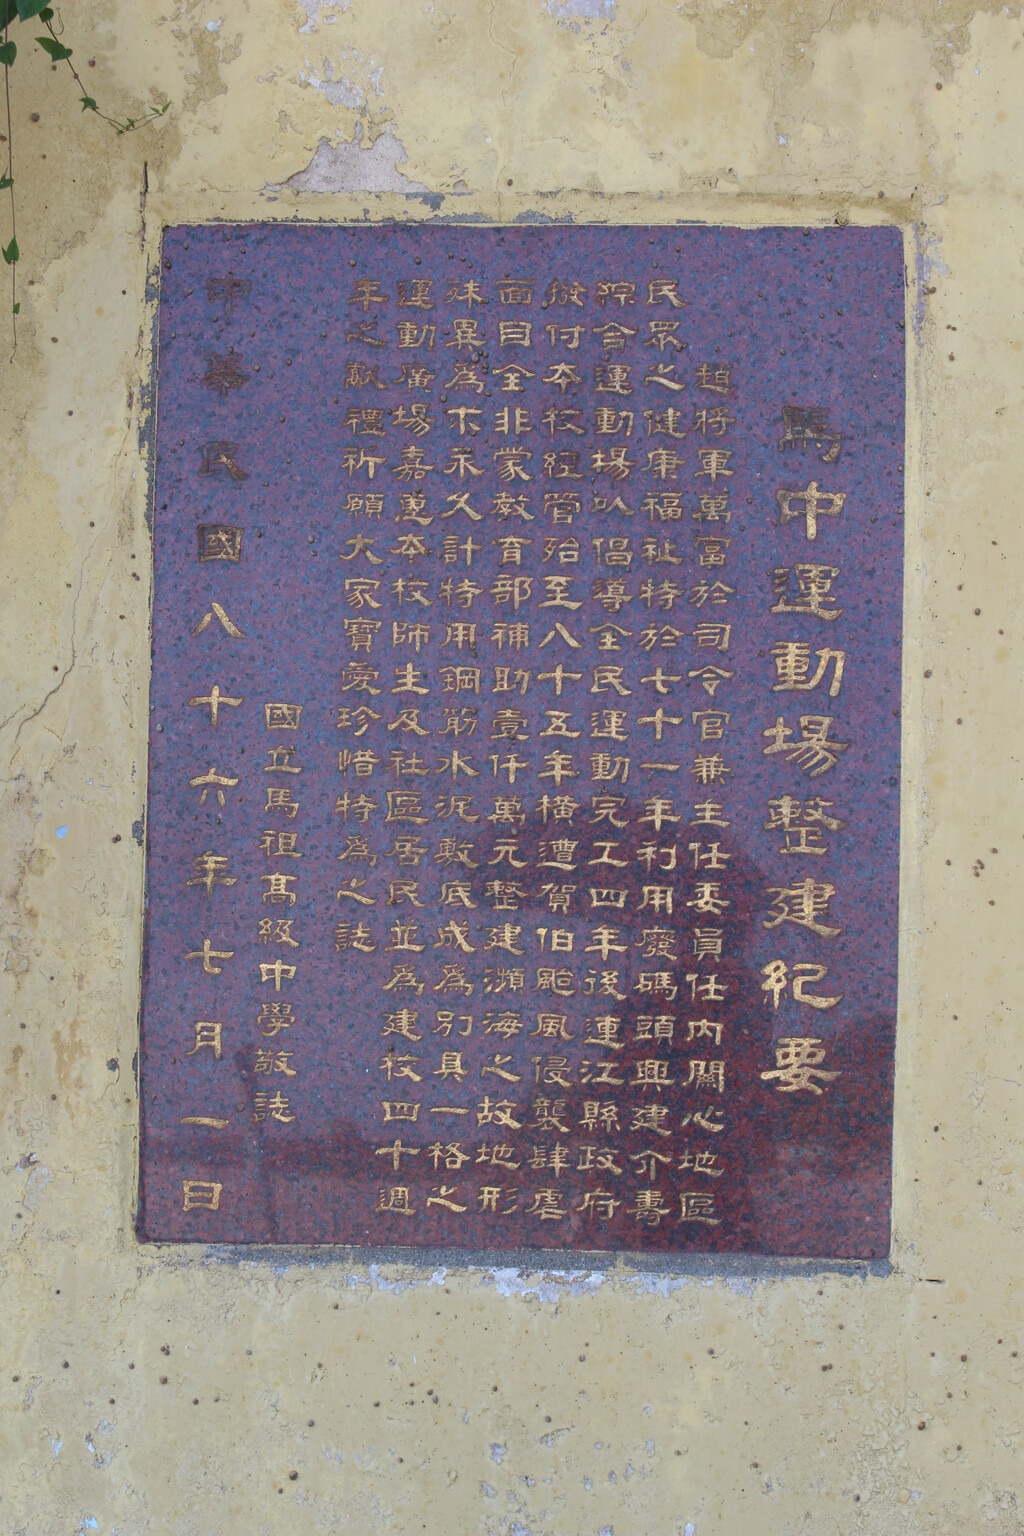 馬中運動場整建紀要
趙將軍萬富於司令官兼主任委員任內關心地區
民眾之健康福祉特於七十一年利用廢碼頭興建介壽
綜合運動場以倡導全民運動完工四年後連江縣政府
撥付本校經管殆至八十五年橫遭賀伯颱風侵襲肆虐
面目全非蒙教育部補助壹仟萬元整建瀕海之故地形
殊異為求永久計特用鋼筋水泥敷底成為別具一格之
運動廣場嘉惠本校師生及社區居民並為建校四十週
年之獻禮祈願大家寶愛珍惜特為之誌
國立馬祖高級中學敬誌
中華民國八十六年七月一日